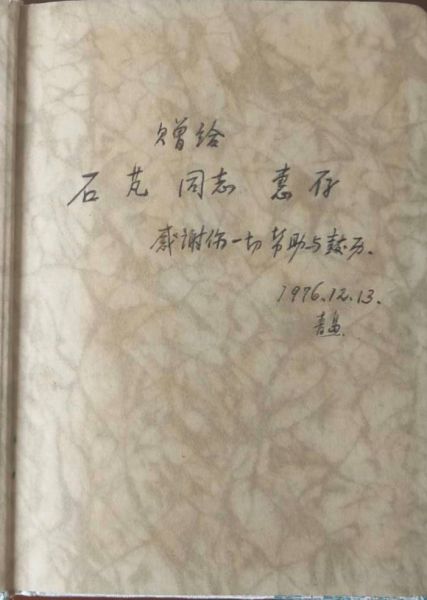 赠给
石芃 同志 惠存
感谢你一切帮助与鼓励.
1976.12.13.
青岛.